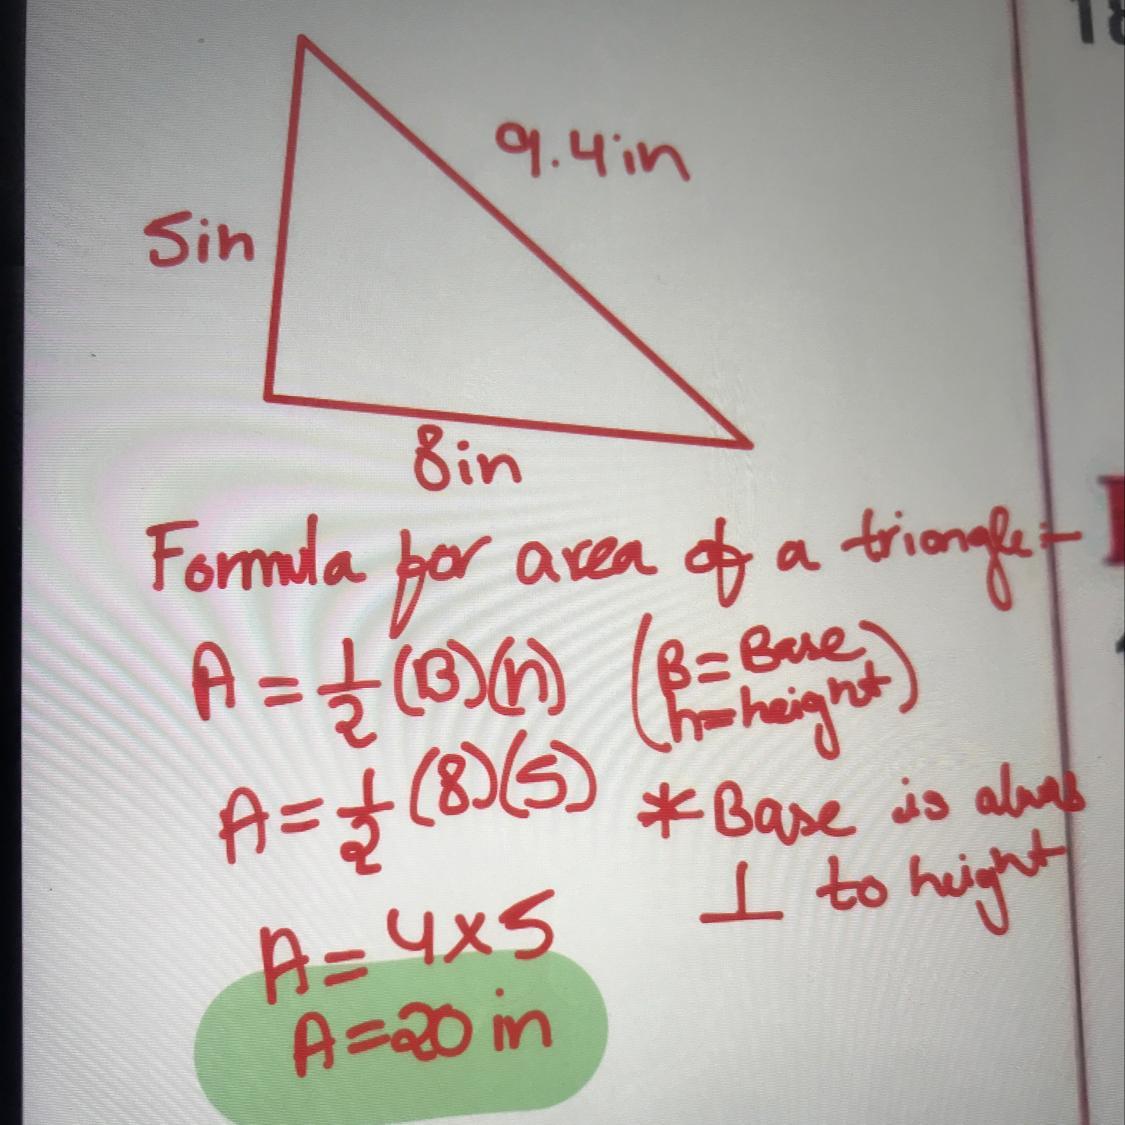 18
9.4in
5in
8in
Formula for area of a triangle:-
A = 1/2 (B)(h) (B = Base
h = height)
A = 1/2 (8)(5)
* Base is always
⊥ to height
A = 4 x 5
A = 20 in